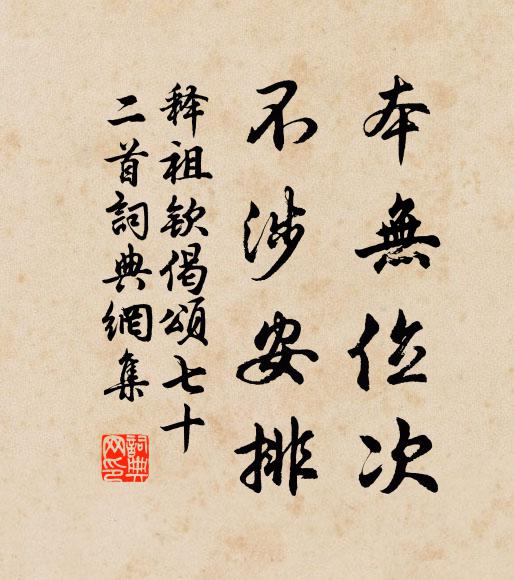 本無位次
不涉安排
释祖欽偈頌七十
二首詞典網集
詞典网印